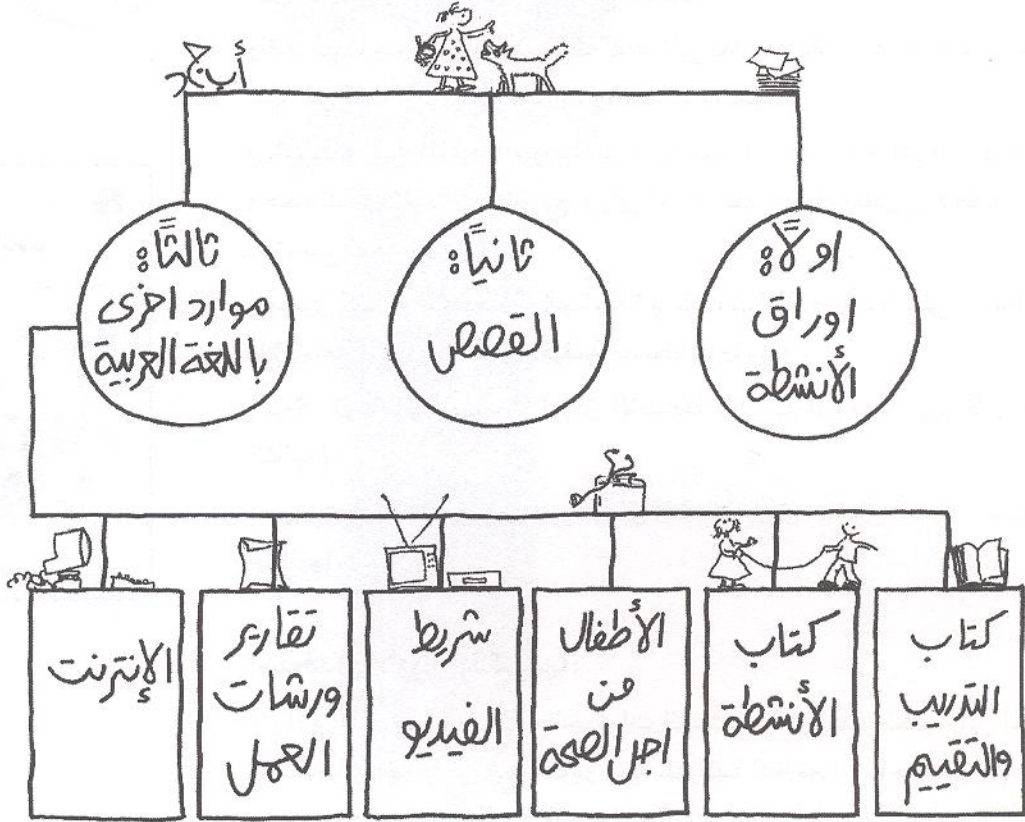 أبجد
اولاً:
اوراق
الأنشطة
ثانياً:
القصص
ثالثاً:
موارد اخرى
باللغة العربية
كتاب
التدريب
والتقييم
كتاب
الأنشطة
الأطفال
من
اجل الصحة
شريط
الفيديو
تقارير
ورشات
العمل
الإنترنت